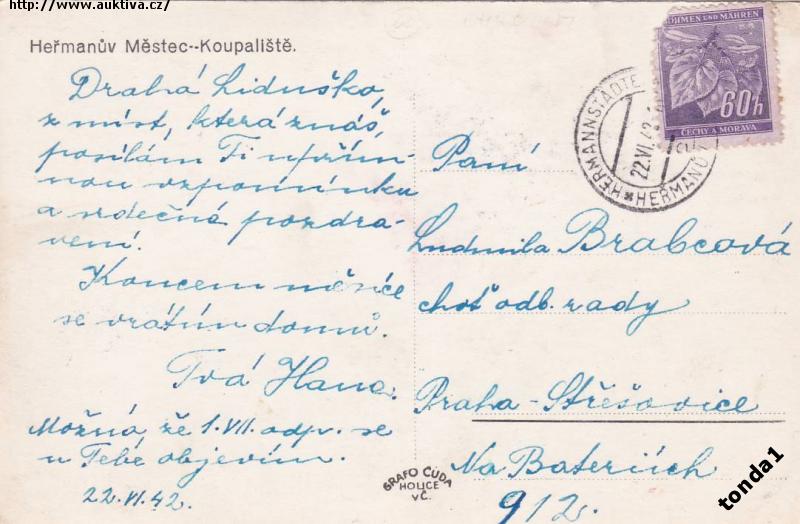 http://www.auktiva.cz/
Heřmanův Městec--Koupaliště.
Drahá Liduško,
z míst, která znáš,
posílám Ti upřím-
nou vzpomínku
a srdečná pozdra-
vení.
Koncem měsíce
se vrátím domů.
Tvá Hana.
Možná, že 1.VII. odp. se
u Tebe objevím.
22.VI.42.
BÖHMEN UND MÄHREN
60h
ČECHY A MORAVA
HERMANNSTÄDTE
22.VI.42
HEŘMANŮ
Paní
Ludmila Brabcová
choť odb. rady
Praha-Střešovice
Na Bateriích
912.
GRAFO ČUDA
HOLICE
v Č.
tonda1